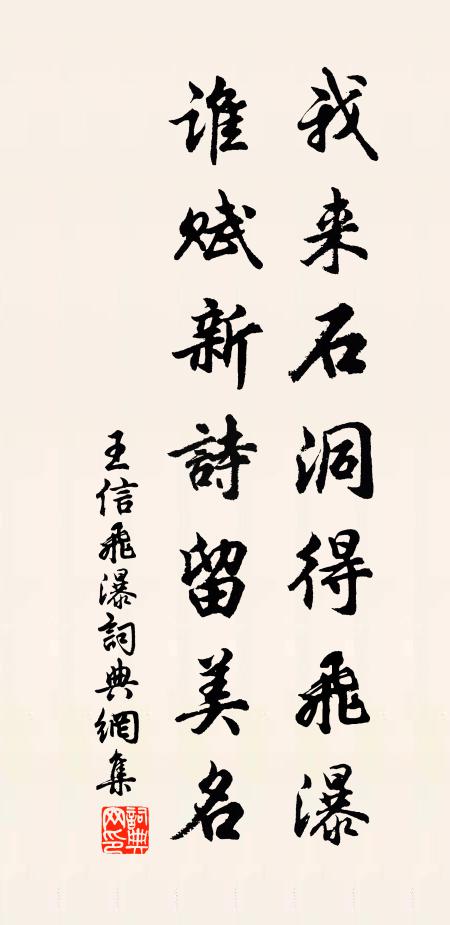 我来石洞得飛瀑
誰賦新詩留美名
王信飛瀑詞典網集
詞典
网印